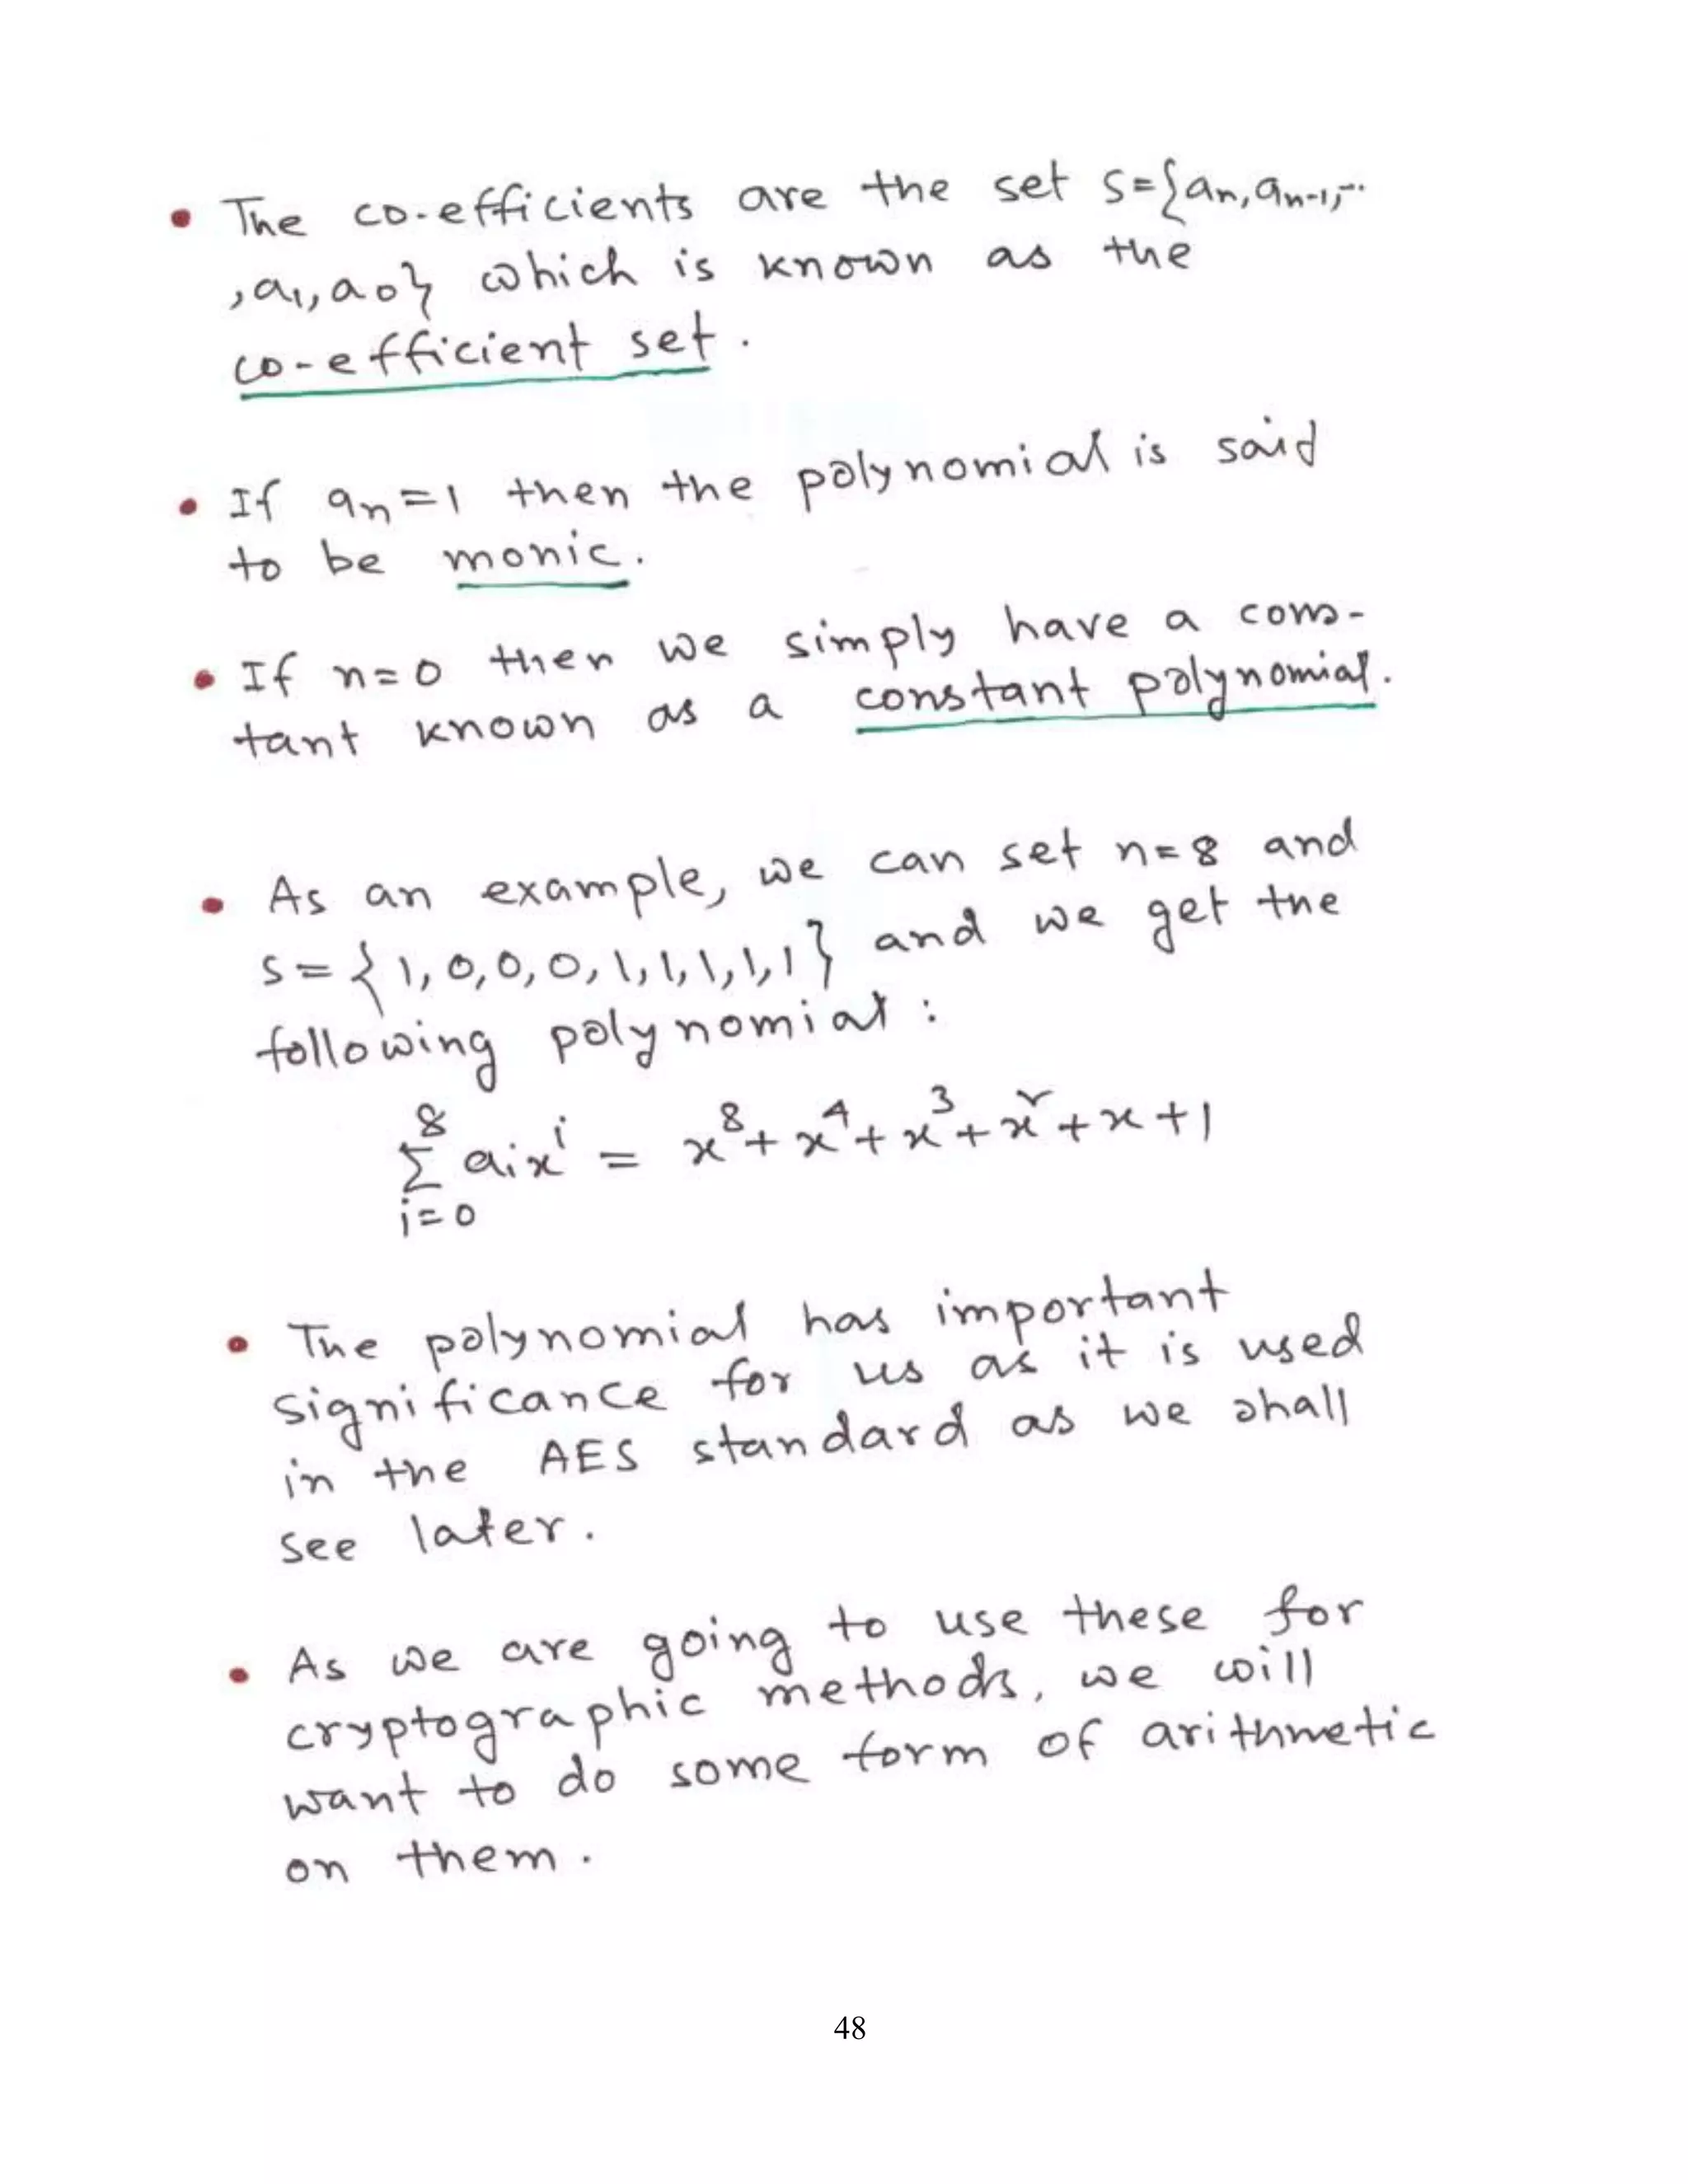 • The co-efficients are the set S={an, an-1,...
, a1, a0} which is known as the
co-efficient set.
• If an=1 then the polynomial is said
to be monic.
• If n=0 then we simply have a cons-
tant known as a constant polynomial.
• As an example, we can set n=8 and
S={1,0,0,0,1,1,1,1,1} and we get the
following polynomial:
8
Σ aixⁱ = x⁸+x⁴+x³+x²+x+1
i=0
• The polynomial has important
significance for us as it is used
in the AES standard as we shall
see later.
• As we are going to use these for
cryptographic methods, we will
want to do some form of arithmetic
on them.
48